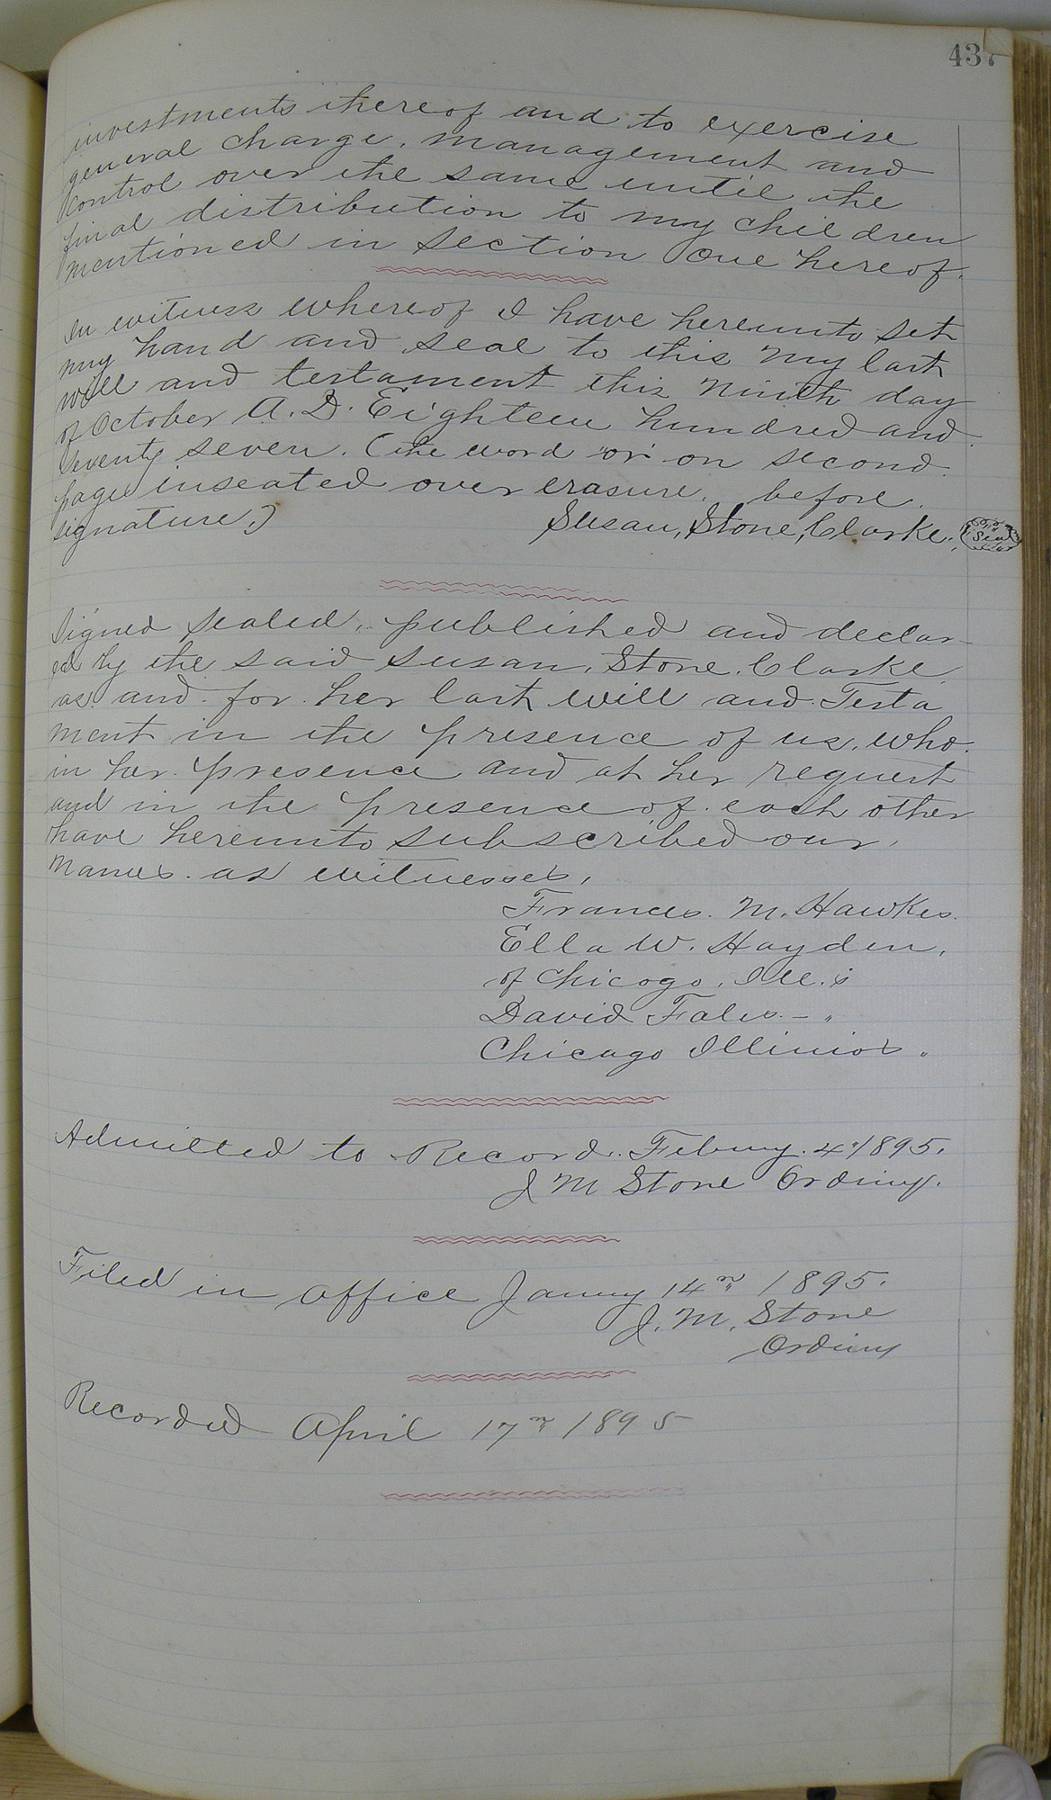 437
investments thereof and to exercise
general charge, management and
control over the same until the
final distribution to my children
mentioned in section one hereof.
In witness whereof I have hereunto set
my hand and seal to this my last
will and testament this ninth day
of October A. D. Eighteen hundred and
seventy seven. (the word "or" on second
page inseated over erasure, before
signature.)
Susan, Stone, Clarke.
Seal
Signed sealed, published and declar
ed by the said Susan, Stone, Clarke,
as and for her last will and Testa
ment in the presence of us, who
in her presence and at her request
and in the presence of each other
have hereunto subscribed our
names as witnesses,
Frances. M. Hawkes.
Ella W. Hayden,
of Chicago, Ill.s
David Fales —
Chicago Illinios.
Admitted to Record. Febuny. 4" 1895.
J M Stone Ordiny.
Filed in office Januny 14th 1895.
J. M. Stone
Ordiny
Recorded April 17th 1895